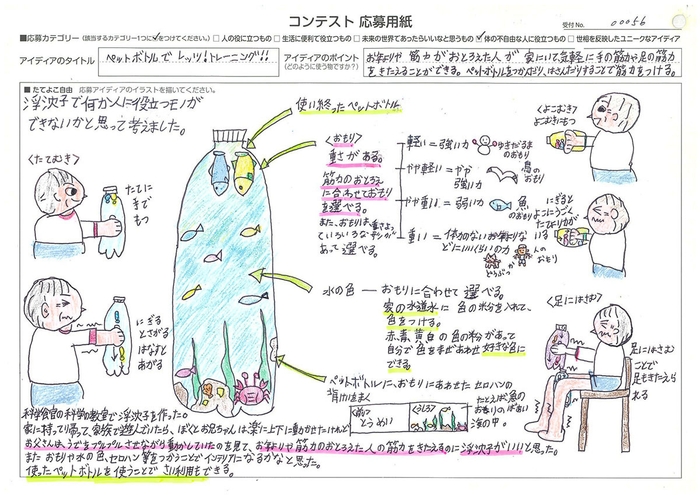 コンテスト 応募用紙
受付No. 00056
■応募カテゴリー(該当するカテゴリー1つに✓をつけてください。) □人の役に立つもの □生活に便利で役立つもの □未来の世界であったらいいなと思うもの ☑体の不自由な人に役立つもの □世相を反映したユニークなアイディア
アイディアのタイトル
ペットボトルで レッツ!トレーニング!!
アイディアのポイント
(どのように使う物ですか?)
お年よりや 筋力がおとろえた人が 家にいて気軽に手の筋力や足の筋力
をきたえることができる。ペットボトルをつかんだり、はさんだりすることで筋力をつける。
■たてよこ自由 応募アイディアのイラストを描いてください。
浮沈子で何か人に役立つモノが
できないかと思って考えました。
使い終ったペットボトル
<たてむき>
たてに
手で
もつ
にぎる
とさがる
はなすと
あがる
<おもり>
重さがある。
筋力のおとろえ
に合わせておもり
を選べる。
また、おもりは、重さによ
っていろいろな
あって選べる。
軽い=強い力
ゆきだるま
のおもり
やや軽い=やや
強い力
鳥の
おもり
やや重い=弱い力
魚
のおもり
重い=体力のないお年よりな
どにいいくらいの力
人の
おもり
どうぶつ
<よこむき>
よこむきにもつ
にぎると
よこにうごく
たてより力が
いる
水の色―おもりに合わせて 選べる。
家の水道水に 色の粉を入れて、
色をつける。
赤、青、黄、白の 色の粉があって
自分で 色をまぜあわせ 好きな色に
できる
ペットボトルに、おもりにあわせた セロハンの
背けいをまく
<前>
とうめい
<うしろ>
たとえば魚の
おもりのばあい
海の中。
<足にはさむ>
足にはさむ
ことで
足もきたえら
れる
科学食官の科学教室で 浮沈子を作った。
家に持って帰って、家族で遊んでいたら、ぼくとお兄ちゃんは、楽に上下に動かせたけれど
お父さんは、うでをプルプルさせながら動かしていたのを見て、お年よりや筋力のおとろえた人の筋力をきたえるのに 浮沈子がいいと思った。
また おもりや水の色、セロハン 等をつかうことで インテリアになるかなと思った。
使ったペットボトルを使うことで さい利用もできる。